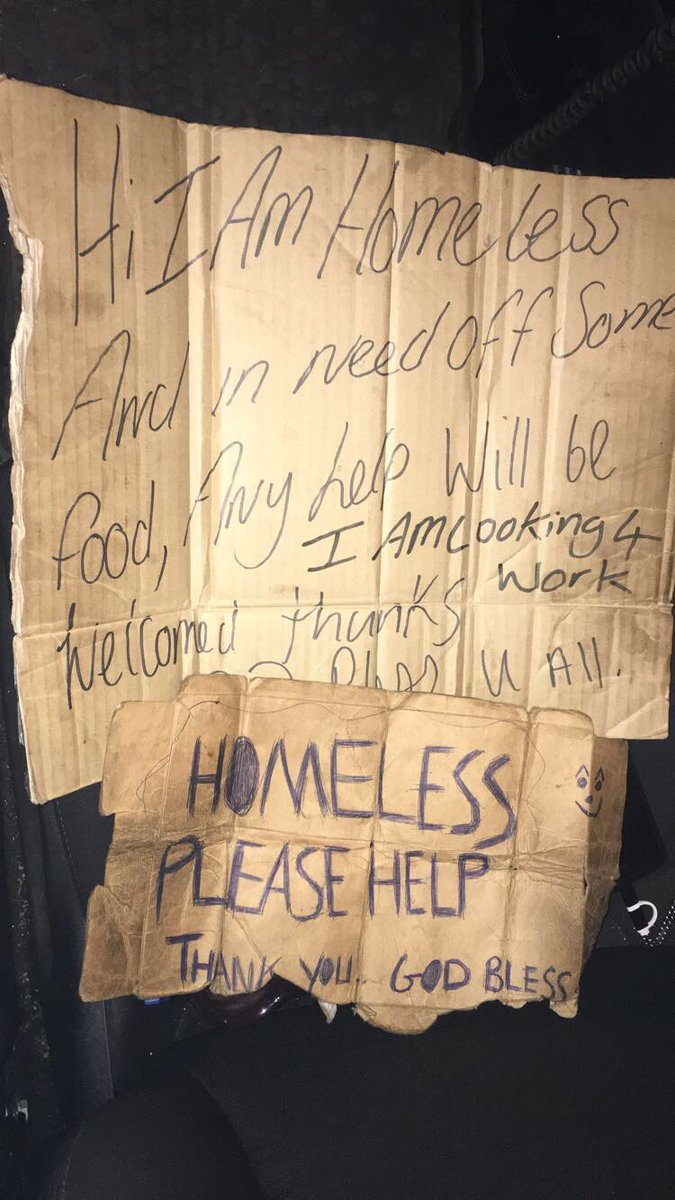 Hi I Am Homeless
And in need off Some
food, Any help Will be
I Am Looking 4
Work
Welcomed thanks
U All.
HOMELESS
PLEASE HELP
THANK YOU.. GOD BLESS